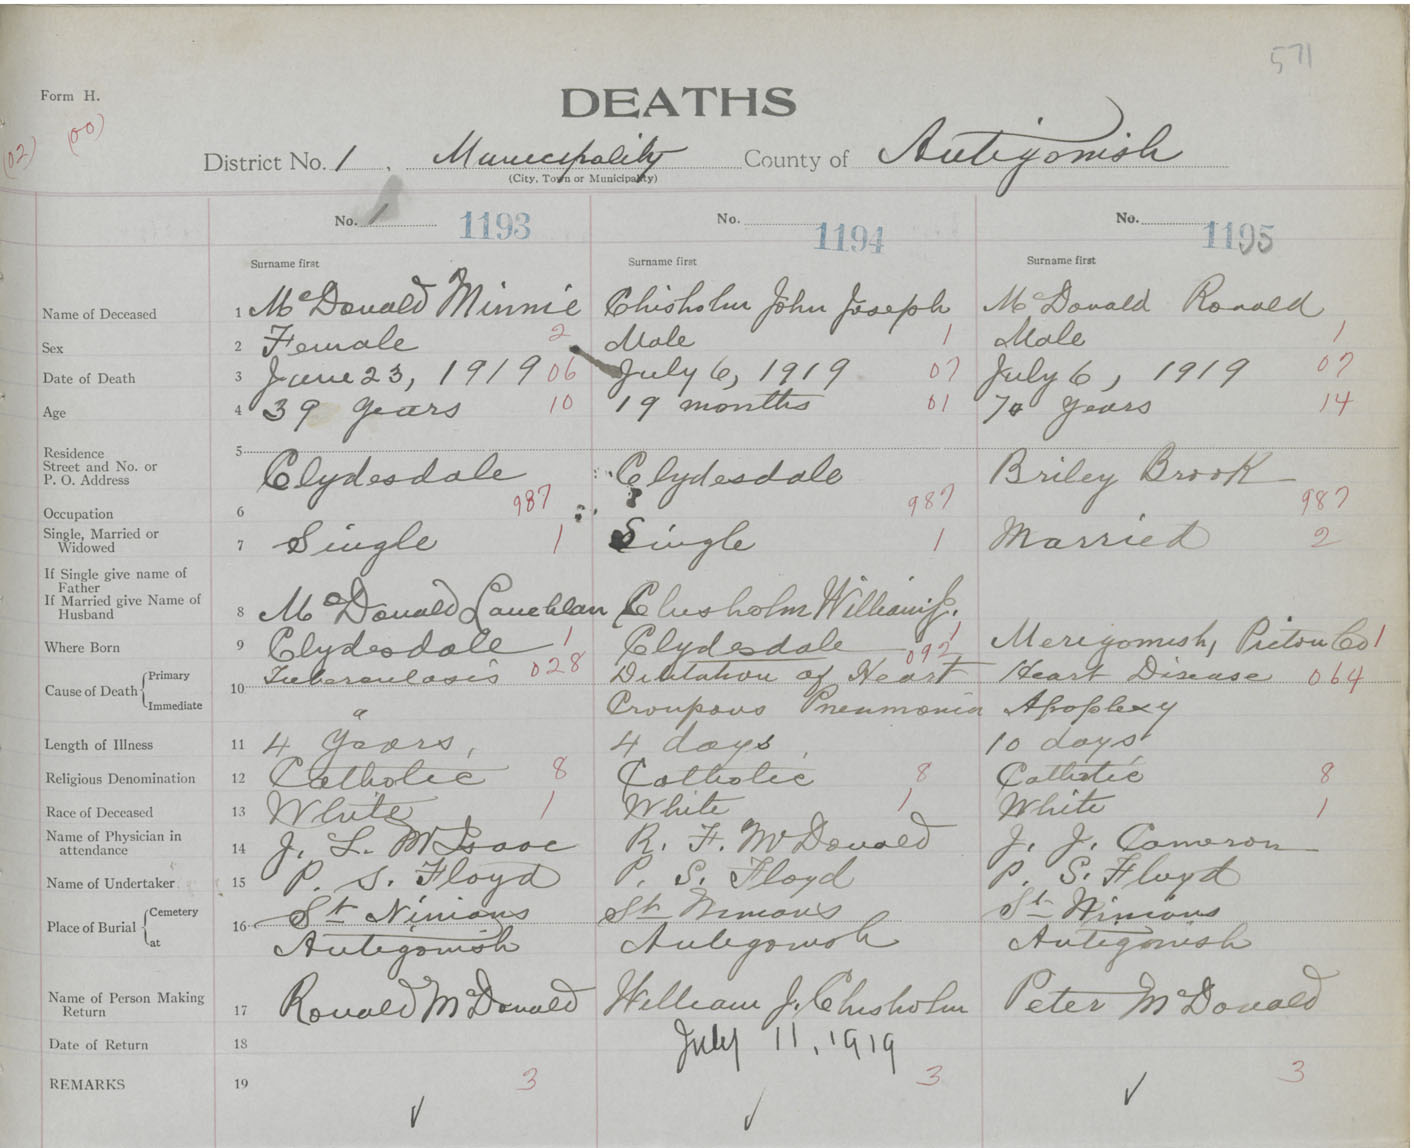 571
Form H.
DEATHS
(02) (00)
District No. 1, Municipality County of Antigonish
(City, Town or Municipality)
No. 1 1193 No. 1194 No. 1195
Surname first Surname first Surname first
Name of Deceased 1 McDonald Minnie Chisholm John Joseph McDonald Ronald
Sex 2 Female 2 Male 1 Male 1
Date of Death 3 June 23, 1919 06 July 6, 1919 07 July 6, 1919 07
Age 4 39 years 10 19 months 01 70 years 14
Residence 5
Street and No. or
P. O. Address Clydesdale Clydesdale Briley Brook
987 987 987
Occupation 6
Single, Married or
Widowed 7 Single 1 Single 1 Married 2
If Single give name of
Father
If Married give Name of
Husband 8 McDonald Lauchlan Chisholm William J.
Where Born 9 Clydesdale 1 Clydesdale 1 Merigomish, Pictou Co 1
Cause of Death Primary 10 Tuberculosis 028 Dilitation of Heart 092 Heart Disease 064
Immediate " Croupous Pneumonia Apoplexy
Length of Illness 11 4 years, 4 days, 10 days
Religious Denomination 12 Catholic 8 Catholic 8 Catholic 8
Race of Deceased 13 White 1 White 1 White 1
Name of Physician in
attendance 14 J. L. McIsaac R. F. McDonald J. J. Cameron
Name of Undertaker 15 P. S. Floyd P. S. Floyd P. S. Floyd
Place of Burial Cemetery 16 St Ninians St Ninians St Ninians
at Antigonish Antigonish Antigonish
Name of Person Making
Return 17 Ronald McDonald William J. Chisholm Peter McDonald
Date of Return 18 July 11, 1919
REMARKS 19 3 3 3